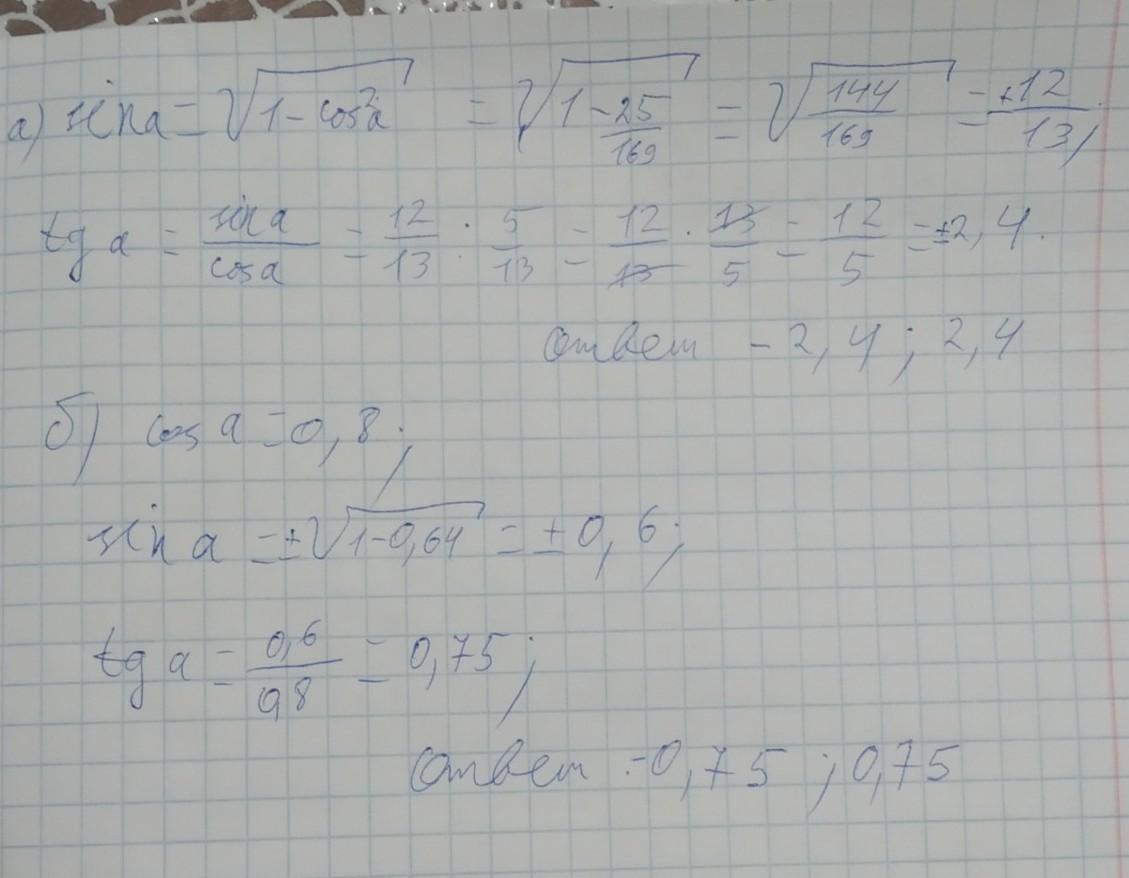 а) sin a = √(1 - cos²a) = √(1 - 25/169) = √(144/169) = ±12/13;
tg a = sin a/cos a = 12/13 : 5/13 = 12/13 · 13/5 = 12/5 = ±2,4.
Ответ -2,4; 2,4
б) cos a = 0,8;
sin a = ±√(1-0,64) = ±0,6;
tg a = 0,6/0,8 = 0,75;
Ответ -0,75; 0,75